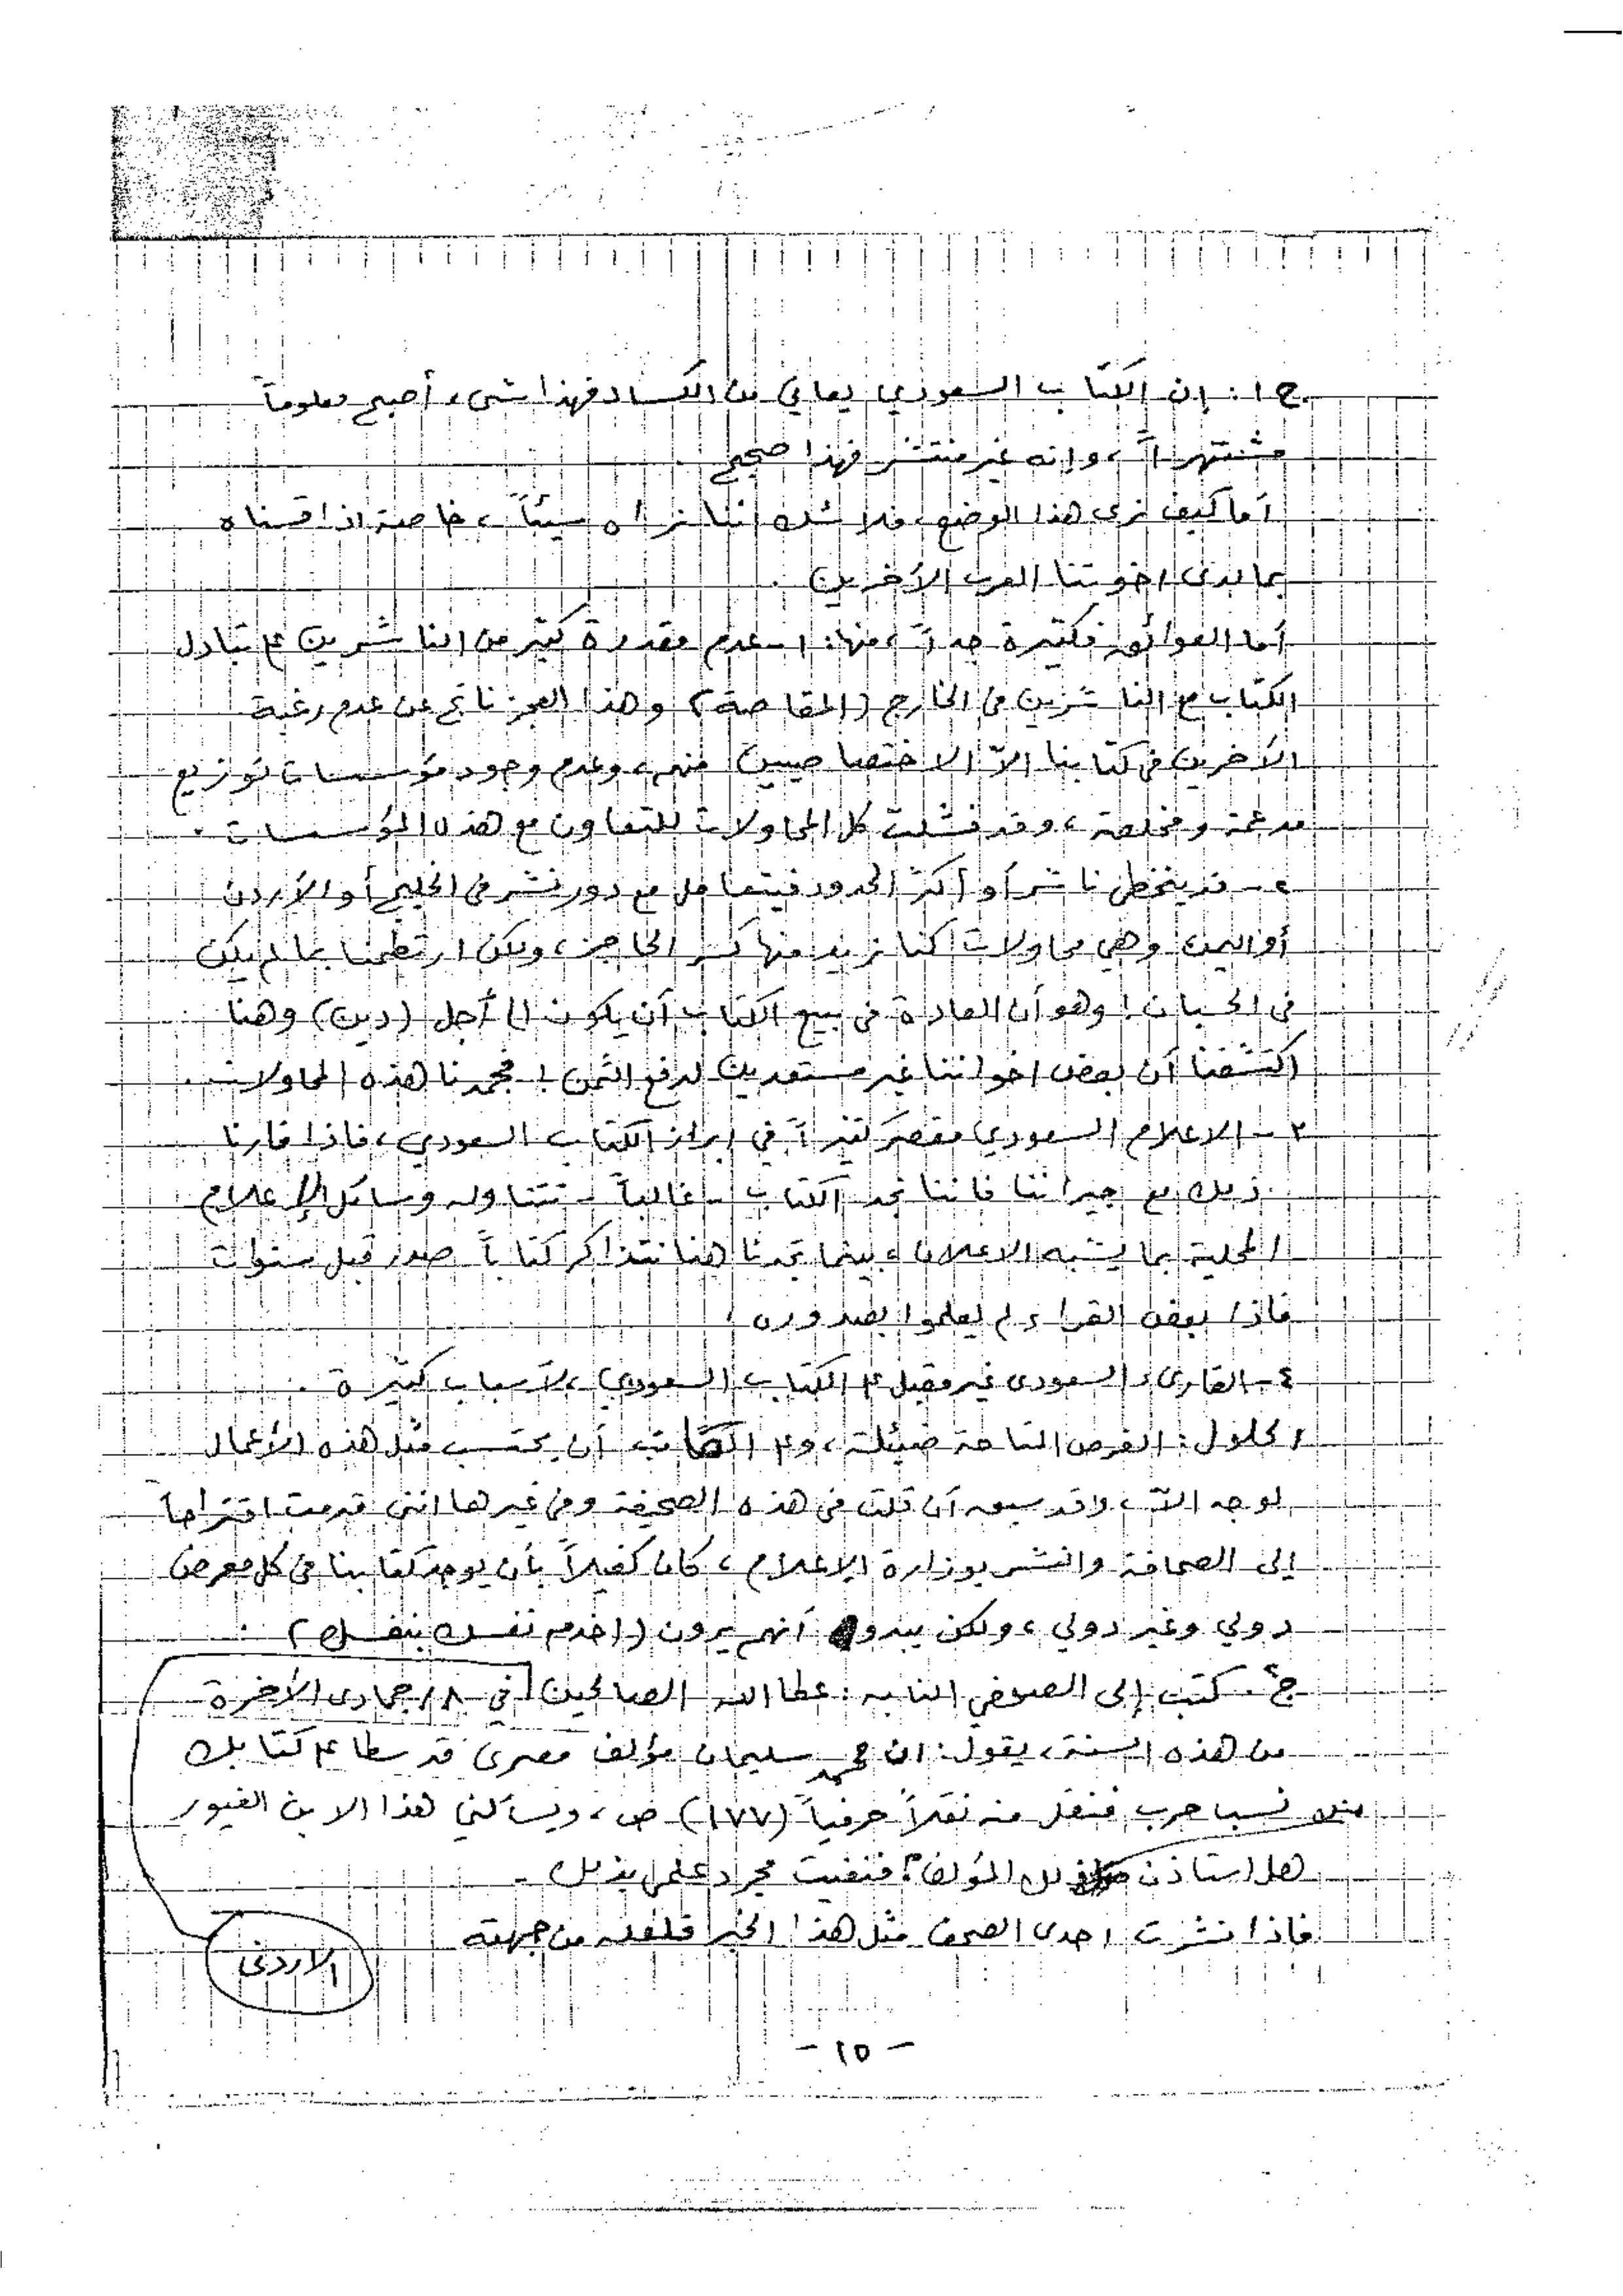 ج١: إن الكتاب السعودي يعاني من الكساد فهذا شيء أصبح معلوماً
مشتهراً، وانه غير منتشر فهذا صحيح
أما كيف نرى هذا الوضع، فلا شك اننا نراه سيئاً، خاصة اذا قسناه
بما لدى اخوتنا العرب الآخرين.
أما العوائق فكثيرة جداً، منها: ١- عدم مقدرة كثير من الناشرين على تبادل
الكتاب مع الناشرين في الخارج (المقاصة) وهذا العجز ناتج عن عدم رغبة
الآخرين في كتابنا الاّ الاختصاصيين منهم، وعدم وجود مؤسسات توزيع
مدعمة ومخلصة، وقد فشلت كل المحاولات للتعاون مع هذه المؤسسات.
٢- قد يتخطى ناشر أو أكثر الحدود فيتعامل مع دور نشر في الخليج أو الأردن
أو اليمن وهي محاولات كنا نريد منها كسر الحاجز، ولكن ارتطمنا بما لم يكن
في الحسبان! وهو أن العادة في بيع الكتاب أن يكون إلى أجل (دين) وهنا
اكتشفنا أن بعض اخواننا غير مستعدين لدفع الثمن! فجمدنا هذه المحاولات.
٣- الاعلام السعودي مقصر كثيراً في ابراز الكتاب السعودي، فاذا قارنا
ذلك مع جيراننا فاننا نجد الكتاب - غالباً - تتناوله وسائل الإعلام
المحلية بما يشبه الاعلان، بينما تجدنا هنا نتذاكر كتاباً صدر قبل سنوات
فاذا بعض القراء لم يعلموا بصدوره.
٤- القارىء السعودي غير مقبل على الكتاب السعودي، لأسباب كثيرة.
الحلول: الفرص المتاحة ضئيلة، وعلى الكاتب أن يحتسب مثل هذه الأعمال
لوجه الله، وقد سبق أن قلت في هذه الصحيفة وفي غيرها انني قدمت اقتراحاً
إلى الصحافة والنشر بوزارة الاعلام، كان كفيلاً بأن يوجد كتابنا في كل معرض
دولي وغير دولي، ولكن يبدو أنهم يرون (اخدم نفسك بنفسك).
ج٢- كتب إلى الصحفي النابه: عطا الله الصالحين في ١٨ جمادى الآخرة
من هذه السنة، يقول: ان محمد سليمان مؤلف مصري قد سطا على كتابك
نسب حرب فنقل منه نقلاً حرفياً (١٧٧) ص، ويسألني هذا الابن الغيور
هل استأذن ذلك المؤلف؟ فنفيت مجرد علمي بذلك.
فاذا نشرت احدى الصحف مثل هذا الخبر فلعله من جهته
الاردني
- ١٥ -